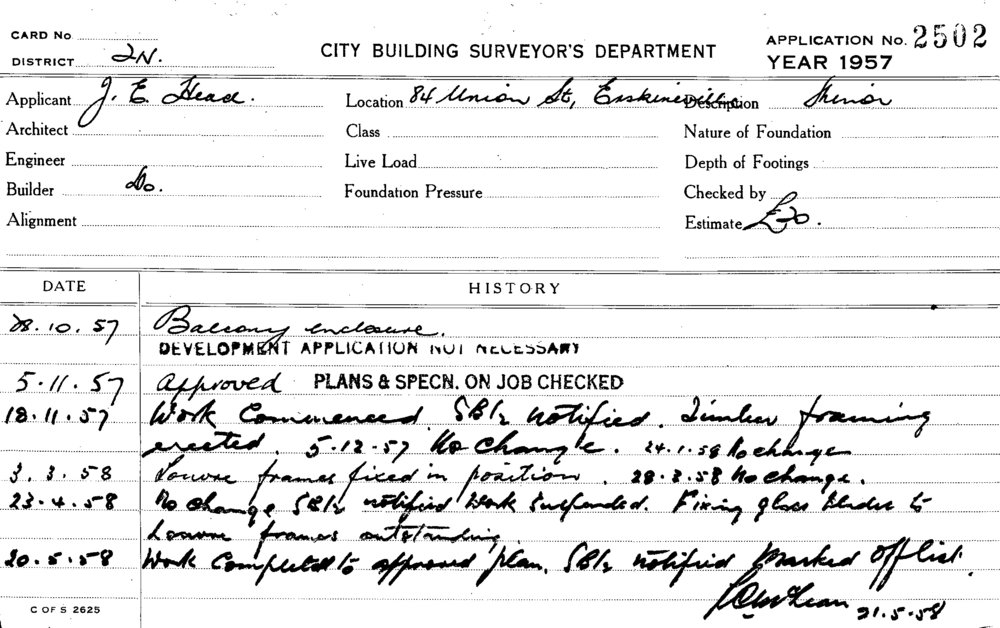 CARD No.
DISTRICT 2N.
CITY BUILDING SURVEYOR'S DEPARTMENT
APPLICATION No. 2502
YEAR 1957
Applicant J. E. Head. Location 84 Union St, Erskineville Description
Architect Class Nature of Foundation
Engineer Live Load Depth of Footings
Builder Do. Foundation Pressure Checked by
Alignment Estimate £70.
DATE HISTORY
28.10.57 Balcony enclosure.
DEVELOPMENT APPLICATION NOT NECESSARY
5.11.57 Approved PLANS & SPECN. ON JOB CHECKED
18.11.57 Work Commenced. notified. Timber framing
erected. 5.12.57 No Change. 24.1.58 No change
3.3.58 Louvre frames fixed in position. 28.3.58 No change.
23.4.58 No change notified Work Suspended. Fixing glass blades to
Louvre frames outstanding.
20.5.58 Work Completed to approved plan. notified Marked Off list.
21.5.58
C OF S 2625